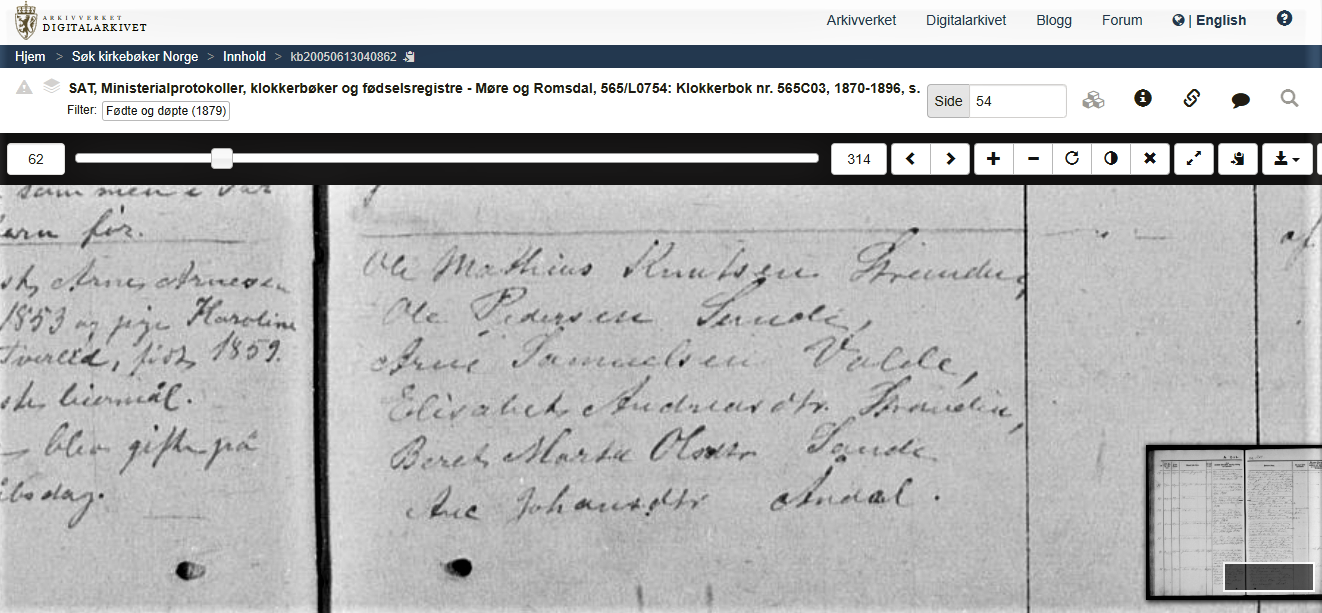 ARKIVVERKET
DIGITALARKIVET
Arkivverket Digitalarkivet Blogg Forum | English
Hjem > Søk kirkebøker Norge > Innhold > kb20050613040862
SAT, Ministerialprotokoller, klokkerbøker og fødselsregistre - Møre og Romsdal, 565/L0754: Klokkerbok nr. 565C03, 1870-1896, s.
Side 54
Filter: Fødte og døpte (1879)
62
314
sammen i
før.
Arne Arnesen
1853 og pige Karoline
Tvereid, født 1859.
biermål.
blev gift på
dag.
Ole Mathius Knutsen
Ole Pedersen Sande,
Arne Samuelsen Valde,
Elisabet Andreasdtr.
Beret Marta Olsdtr Sande
Ane Johansdtr Andal.
af